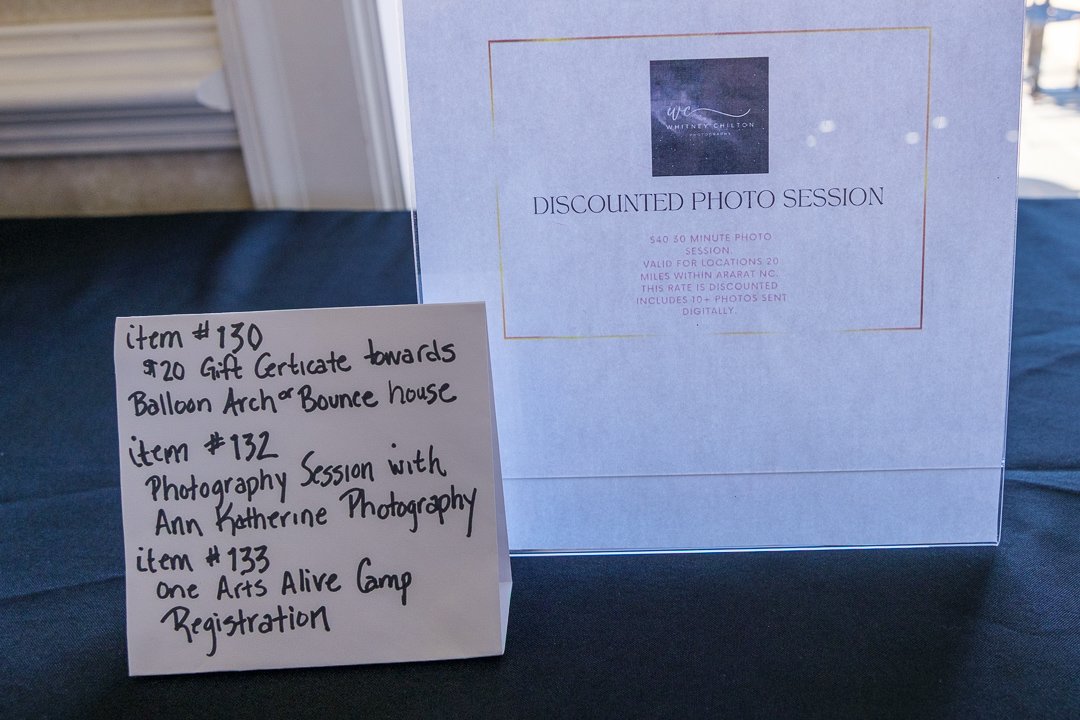 item #130
$20 Gift Certicate towards
Balloon Arch or Bounce house
item #132
Photography Session with
Ann Katherine Photography
item #133
one Arts Alive Camp
Registration
wc
WHITNEY CHILTON
PHOTOGRAPHY
DISCOUNTED PHOTO SESSION
$40 30 MINUTE PHOTO
SESSION.
VALID FOR LOCATIONS 20
MILES WITHIN ARARAT NC.
THIS RATE IS DISCOUNTED
INCLUDES 10+ PHOTOS SENT
DIGITALLY.